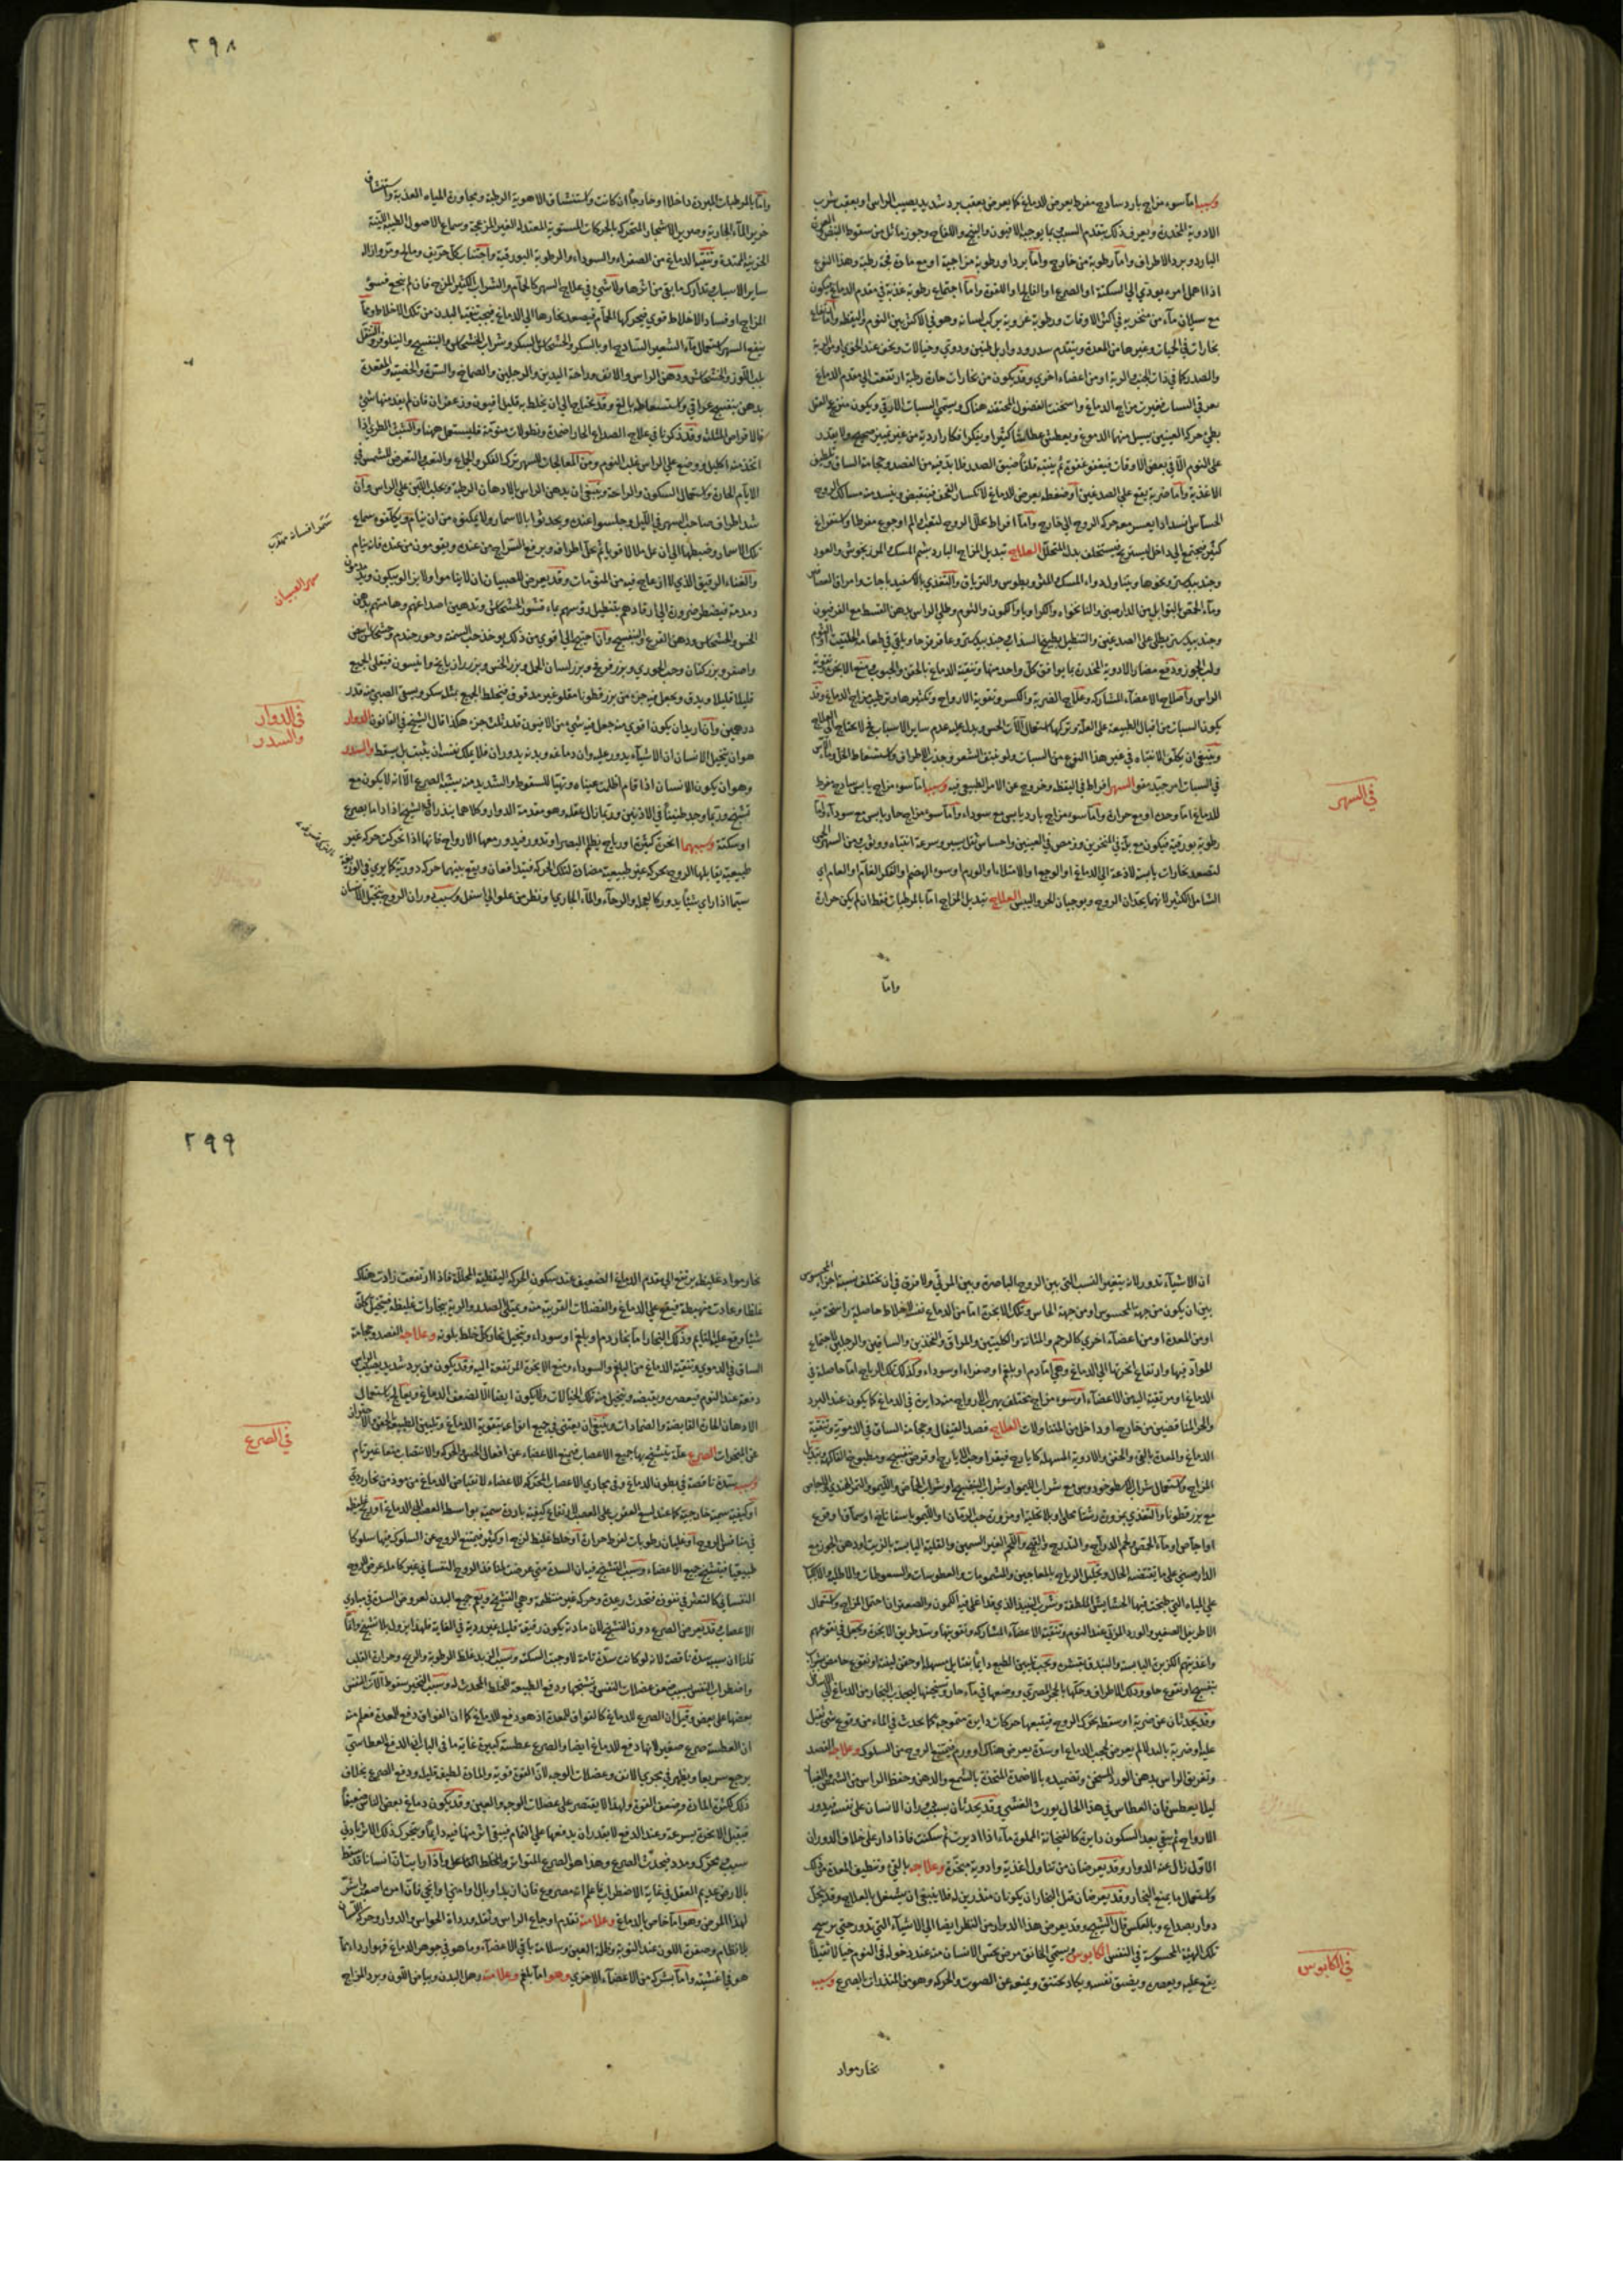 وسببه اما سوء مزاج بارد ساذج مفرط يعرض للدماغ كما يعرض بعقب برد شديد يصيب الراس او بعقب شرب
الادوية المخدرة ويعرف ذلك بتقدم السبب مما يوجبه الافيون والبنج واللفاح وجوز ماثل من سقوط النبض
البارد وبرد الاطراف واما رطوبة من خارج واما برد او رطوبة مزاجية او مع مادة فجة رطبة وهذا النوع
اذا اهمل امره يودي الى السكتة او الصرع او الفالج او اللقوة واما اجتماع رطوبة عذبة في مقدم الدماغ ويكون
مع سيلان ماء من منخريه في اكثر الاوقات ورطوبة غروية يركب لسانه وهو في الاكثر بين النوم واليقظة واما
بخارات في الحميات وغيرها من المعدة ويتقدم سدر ودوار بل طنين ودوي وخيالات ويخف عند الخوي او من الرية
والصدر كما في ذات الجنب والرية او من اعضاء اخري وقد يكون من بخارات حارة رطبة ارتفعت الى مقدم الدماغ
بطي حركة العينين يسيل منهما الدموع ويعطش عطاسا كثيرا ويتفكر افكارا ردية من غير تمييز صحيح ولا يقدر
على النوم الا في بعض الاوقات فيغفو غفوة ثم ينتبه قلقا ضيق الصدر فلا بد فيه من الفصد وحجامة الساق
الاغذية واما ضربة يقع على الصدغين او ضغطة يعرض للدماغ لانكسار القحف فينقبض ويفسد منه مسالك الروح
الحساس انسدادا يعسر معه حركة الروح الى خارج واما افراط تحلل الروح لتعب او الم او جوع مفرط او استفراغ
كثير فيجتمع الى داخل ليستريح فيستخلف بدل المتحلل العلاج تبديل المزاج البارد بشم المسك والمرزنجوش والعود
وجندبيدستر ونحوها ويتناول دواء المسك والمثروديطوس والترياق والتغذي بالاسفيدباجات وامراق العصافير
وماء الحمص بالتوابل من الدارصيني والنانخواه والكراويا والكمون والثوم وطلي الراس بدهن القسط مع الفرفيون
الراس واصلاح الاعضاء المشاركة وعلاج الضربة والكسر وتقوية الارواح وتكثيرها وترطيب مزاج الدماغ وقد
يكون السبات من اقبال الطبيعة على العلة وتركها استعمال آلات الحس ويدل عليه عدم ساير الاسباب فلا يحتاج الى العلاج
وينبغي ان يكلف الانتباه في غير هذا النوع من السبات ولو بنتف الشعر وجذب الاطراف واستعاط الخل
في السبات امر جيد معه السهر افراط في اليقظة وخروج عن الامر الطبيعي فيه وسببه اما سوء مزاج يابس ساذج مفرط
للدماغ اما وحده او مع حرارة واما سوء مزاج بارد يابس مع سوداء واما سوء مزاج حار يابس مع سوداء واما
رطوبة بورقية فيكون مع بلة في المنخرين ورمص في العينين واحساس ثقل يسير وسرعة انتباه ووثوب من السهر
لتصعد بخارات يابسة لاذعة الى الدماغ او الوجع او الامتلاء او الورم او سوء الهضم والفكر الغام او العام اي
الشامل الكثير لانهما يحدان الروح ويوجبان الحر واليبس العلاج تبديل المزاج اما بالمرطبات فقط ان لم يكن حرارة
واما
في السهر
٢٩٨
واما بالمرطبات المبردة داخلا وخارجا ان كانت واستنشاق الاهوية الرطبة ومجاورة المياه العذبة واستنشاق
خرير الماء الجارية وصرير الاشجار المتحركة بالحركات المستوية المعتدلة الغير المزعجة وسماع الاصوات الطيبة اللينة
الحزينة الممتدة وتنقية الدماغ من الصفراء والسوداء والرطوبة البورقية واجتناب كل حريف ومالح ومر وازالة
ساير الاسباب وتدارك ما بقي من اثرها ولا شي في علاج السهر كالحمام والشراب الكثير المزج فان لم ينجع فسوء
المزاج او فساد الاخلاط قوي فيحركها الحمام فيصعد بخارها الى الدماغ فيجب تنقية البدن من تلك الاخلاط ومما
ينفع السهر استعمال ماء الشعير الساذج او بالسكر والخشخاش بالسكر وشراب الخشخاش والبنفسج والنيلوفر
بلب اللوز والخشخاش ودهن الراس والانف وراحة اليدين والرجلين والصماخ والسرة والخصية والمقعدة
بدهن بنفسج عراقي واستسعاطه بالغ وقد يحتاج الى ان يخلط به قليل افيون وزعفران فان لم يفد منها شي
فالاقراص المثلثة وقد ذكرنا في علاج الصداع الحار اضمدة ونطولات منومة فليستعمل ههنا والشبت الطري اذا
اتخذ منه اكليل ووضع على الراس غلب النوم ومن المعالجات للسهر ترك الفكر والجماع والتعب والتعرض للشمس في
الايام الحارة واستعمال السكون والراحة وينبغي ان يدهن الراس بالادهان الرطبة ويحلب اللبن على الراس وان
شد اطراف صاحب السهر في الليل وجلسوا عنده ويحدثوا بالاسمار ولا يمكنوه من ان ينام ويكلفوه سماع
تلك الاسمار وضبطها الى ان يمل ملالا قويا ثم يحل اطرافه ويرفع السراج من عنده ويقومون من عنده فانه ينام
والغناء الرقيق الذي لا ازعاج فيه من المنومات وقد يعرض للصبيان ان لا يناموا ولا يزالوا يبكون
سمر العصبيان
واصفر وبزر كتان وحب الجوري وبزر فرفخ وبزر لسان الحمل وبزر الخس وبزر رازيانج وانيسون فيقلى الجميع
قليلا قليلا ويدق ويجعل فيه جزء من بزر قطونا مقلو غير مدقوق فيخلط الجميع بمثله سكر ويسقى الصبي منه قدر
درهمين وان اريد ان يكون اقوى منه جعل فيه شي من الافيون قدر ثلث جزء هكذا قال الشيخ في القانون الدوار
في الدوار
والسدر
هو ان يتخيل الانسان ان الاشياء يدور عليه وان دماغه وبدنه يدوران فلا يملك نفسه ان يثبت بل يسقط والسدر
وهو ان يكون الانسان اذا قام اظلمت عيناه وتهيا للسقوط والشديد منه يشبه الصرع الا انه لا يكون مع
تشنج وربما وجد طنينا في الاذنين وربما زال عقله وهو مقدمة الدوار وكلاهما ينذر قال الشيخ اذا داما بصرع
او سكتة وسببهما ابخرة كثيرة او رياح يظلم البصر او تدور فيدور معها الارواح فانها اذا تحركت حركة غير
طبيعية يقابلها الروح بحركة غير طبيعية مضادة لتلك الحركة فيتدافعان ويقع بينهما حركة دورية كما يرى في الزوبعة
سيما اذا راي شيئا يدور كالعجلة والرحاء والماء الجاري او نظر من علو الى اسفل وسبب دوران الروح يتخيل الانسان
ان الاشياء تدور لانه يتغير النسب التي بين الروح الباصرة وبين المرئي ولا فرق في ان يختلف نسبة اجزاء المحسوس
بين ان يكون من جهة المحسوس او من جهة الحاس وتلك الابخرة اما من الدماغ نفسه لاخلاط حاصلة راسخة فيه
او من المعدة او من اعضاء اخرى كالرحم والمثانة والكليتين والمراق والفخذين والساقين والرجلين لاجتماع
المواد فيها وارتفاع ابخرتها الى الدماغ وهي اما دم او بلغم او صفراء او سوداء وكذلك تلك الرياح اما حاصلة في
الدماغ او مرتقية اليه من الاعضاء او سوء مزاج يختلف يهرب الارواح منه دايرة في الدماغ كما يكون عند البرد
والحر المناقضين من خارج او داخل من المتناولات العلاج فصد القيفال وحجامة الساق في الدموية وتنقية
الدماغ والمعدة بالقي والحقن والادوية المسهلة كايارج فيقرا وحب الايارج او قرص بنفسج ومطبوخ الفاكهة وتبديل
مع بزر قطونا والتغذي بمزورة رشتا محلى او بلا تحلية او مزورة حب الرمان او الليمو باسفاناخ او سمانا او قرع
او اجاص او ماء الحمص ولحم الدراج والتدرج والقبج واللحم الغير السمين والقلية اليابسة بالزيت او دهن الجوز مع
الدارصيني على ما يقتضيه الحال وتحليل الرياح بالمعاجين والشمومات والعطوسات والسعوطات والاطلية والاكباب
على المياه التي طبخت فيها الحشايش الملطفة وشرب النبيذ الذي قد اغلي فيه الكمون والصعتر ان احتمل المزاج واستعمال
الاطريفل الصغير والورد المربى عند النوم وتنقية الاعضاء المشاركة وتقويتها وسد طريق الابخرة ويجعل في نقوعهم
واغذيتهم الكزبرة اليابسة والبندق بقشره ويجب تليين الطبع دايما بفتايل مسهلة او حقن لينة او نقوع حامض
بنفسج او نقوع حلو ودلك الاطراف وحكها بالحجر المصري ووضعها في ماء حار وتسخينها ليجذب البخار من الدماغ الى الاسافل
وقد يحدثان عن ضربة او سقطة يحرك الروح فيتبعها حركات دايرة متموجة كما يحدث في الماء من وقوع شي ثقيل
عليه او ضربة بالبدن لم يعرض لحجب الدماغ او سدة يعرض هناك او ورم فيمتنع الروح من السلوك وعلاجه الفصد
وتغريق الراس بدهن الورد المسخن وتضميده بالاضمدة المتخذة بالشمع والدهن وحفظ الراس من الشمس والغبار
ليلا يعطس فان العطاس في هذا الحال يورث الغشي وقد يحدثان بسبب دوران الانسان على نفسه فيدور
الارواح ثم يبقى بعد السكون دايرة كالفنجانة المملوة ماء اذا اديرت ثم سكنت فاذا دار على خلاف الدوران
الاول زال عنه الدوار وقد يعرضان من تناول اغذية وادوية مبخرة وعلاجه بالقي وتنظيف المعدة من ذلك
واستعمال ما يمنع البخار وقد يعرضان قبل البحران يكونان منذرين له فلا ينبغي ان يشتغل بالعلاج وقد ينحل
دوار بصداع وبالعكس قال الشيخ وقد يعرض هذا الدوار من النظر ايضا الى الاشياء التي تدور حتى يرسخ
تلك الهيئة المحسوسة في النفس الكابوس ويسمى الخانق مرض يحس الانسان منه عند دخوله في النوم خيالا ثقيلا
في الكابوس
يقع عليه ويعصره ويضيق نفسه ويكاد يختنق ويمنعه عن الصوت والحركة وهو من المنذرات بالصرع وسببه
بخار مواد
٢٩٩
بخار مواد غليظة يرتفع الى مقدم الدماغ الضعيف عند سكون الحركة اليقظية المحللة فاذا ارتفعت زادت هناك
غلظا وعادت منهبطة فيقع على الدماغ والعضلات القريبة منه ويمتلي الصدر والرية بخارات غليظة فيتخيل كان
شيئا وقع عليه النايم وذلك البخار اما بخار دم او بلغم او سوداء ويتخيل بخار كل خلط بلونه وعلاجه الفصد وحجامة
الساق في الدموي وتنقية الدماغ من البلغم والسوداء ومنع الابخرة المرتفعة اليه وقد يكون من برد شديد يصيب الراس
دفعة عند النوم فيعصره ويقبضه ويتخيل منه تلك الخيالات ولا يكون ايضا الا لضعف الدماغ ويعالج باستعمال
الادهان الحارة القابضة والضمادات وينبغي ان يعتني في جميع انواعه بتقوية الدماغ وتليين الطبيعة
عن المبخرات الصرع علة يتشنج بها جميع الاعصاب فيمنع الاعضاء عن افعال الحس والحركة والانتصاب منعا غير تام
في الصرع
وسببه سدة ناقصة في بطون الدماغ وفي مجاري الاعصاب المحركة للاعضاء لانقباض الدماغ من موذ من بخار ردي
او كيفية سمية خارجية كما عند لسع العقرب على العصب او ارتفاع كيفية باردة سمية بواسطة العصب الى الدماغ او ريح غليظة
في منافس الروح او غليان رطوبات لفرط حرارة او خلط غليظ لزج او كثير فيمتنع الروح عن السلوك فيها سلوكا
طبيعيا فيتشنج جميع الاعضاء وسبب التشنج فيه ان السدة متى عرضت لمنافذ الروح النفساني غير كاملة عرض للروح
النفساني كالتعثر في نفوذه فتحدث رعدة وحركة غير منتظمة وهي التشنج ويعم جميع البدن لعروض السدة في مبادي
الاعصاب وقد يعرض الصرع دون التشنج لان مادته يكون رقيقة قليلة غير ردية في الغاية فلهذا يزول بلا تشنج وانما
قلنا ان سببه سدة ناقصة لانه لو كانت سدة تامة لاوجبت السكتة وسبب الزبد غلظ الرطوبة والريح وحرارة القلب
واضطراب النفس بسبب ضعف عضلات النفس وتشنجها ودفع الطبيعة للخلط المحدث له وسبب النخير سقوط آلات النفس
بعضها على بعض وقيل ان الصرع للدماغ كالفواق للمعدة اذ هو دفع للدماغ كما ان الفواق دفع للمعدة فعلم منه
ان العطسة صرع صغير لانها دفع للدماغ ايضا والصرع عطسة كبيرة غاية ما في الباب ان الدفع العطاسي
يرجع سريعا ويظهر في مجرى الانف وعضلات الوجه لان القوة قوية والمادة لطيفة قليلة ودفع الصرع بخلاف
ذلك لكثرة المادة وضعف القوة ولهذا لا يقتصر على عضلات الوجه والعين وقد يكون دماغ بعض الناس ضعيفا
فيقبل الابخرة بسرعة وعند الدفع لا يقدر ان يدفعها على التمام فيبقى اثر منها فيه دايما ويتحرك ذلك الاثر بادنى
سبب محرك ومدد فيحدث الصرع وهذا هو الصرع المتواتر والخلط الفاعل واذا رايت انسانا قد سقط
بالارض عديم العقل في غاية الاضطراب فاعلم انه مصروع فان ازبد او بال او امنى او انجى فانه من اصعب
لهذا المرض وهو اما خاص بالدماغ وعلامته تقدم اوجاع الراس وثقله ورداة الحواس والدوار وحركة اللسان
بلا نظام وصفرة اللون عند النوبة وظلمة العين وسلامة باقي الاعضاء وما هو في جوهر الدماغ فهو اردا مما
هو في اغشيته واما بشركة من الاعضاء الاخرى وهو اما بلغم وعلامته رهل البدن وبياض اللون وبرد المزاج